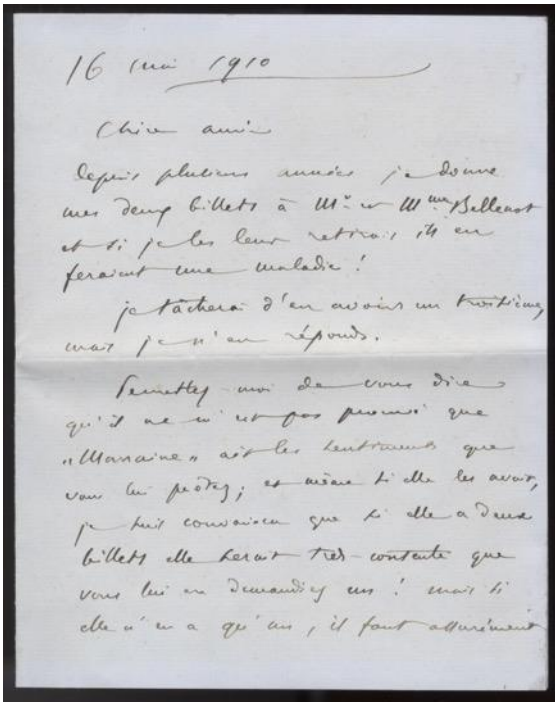 16 mai 1910
Chère amie
depuis plusieurs années je donne
mes deux billets à Mr et Mme Bellenot
et si je les leur retirais ils en
feraient une maladie !
je tâcherai d'en avoir un troisième
mais je n'en réponds.
Permettez-moi de vous dire
qu'il ne m'est pas prouvé que
"Marraine" ait les sentiments que
vous lui prêtez ; et même si elle les avait,
je suis convaincu que si elle a deux
billets elle serait très-contente que
vous lui en demandiez un ! mais si
elle n'en a qu'un, il faut assurément